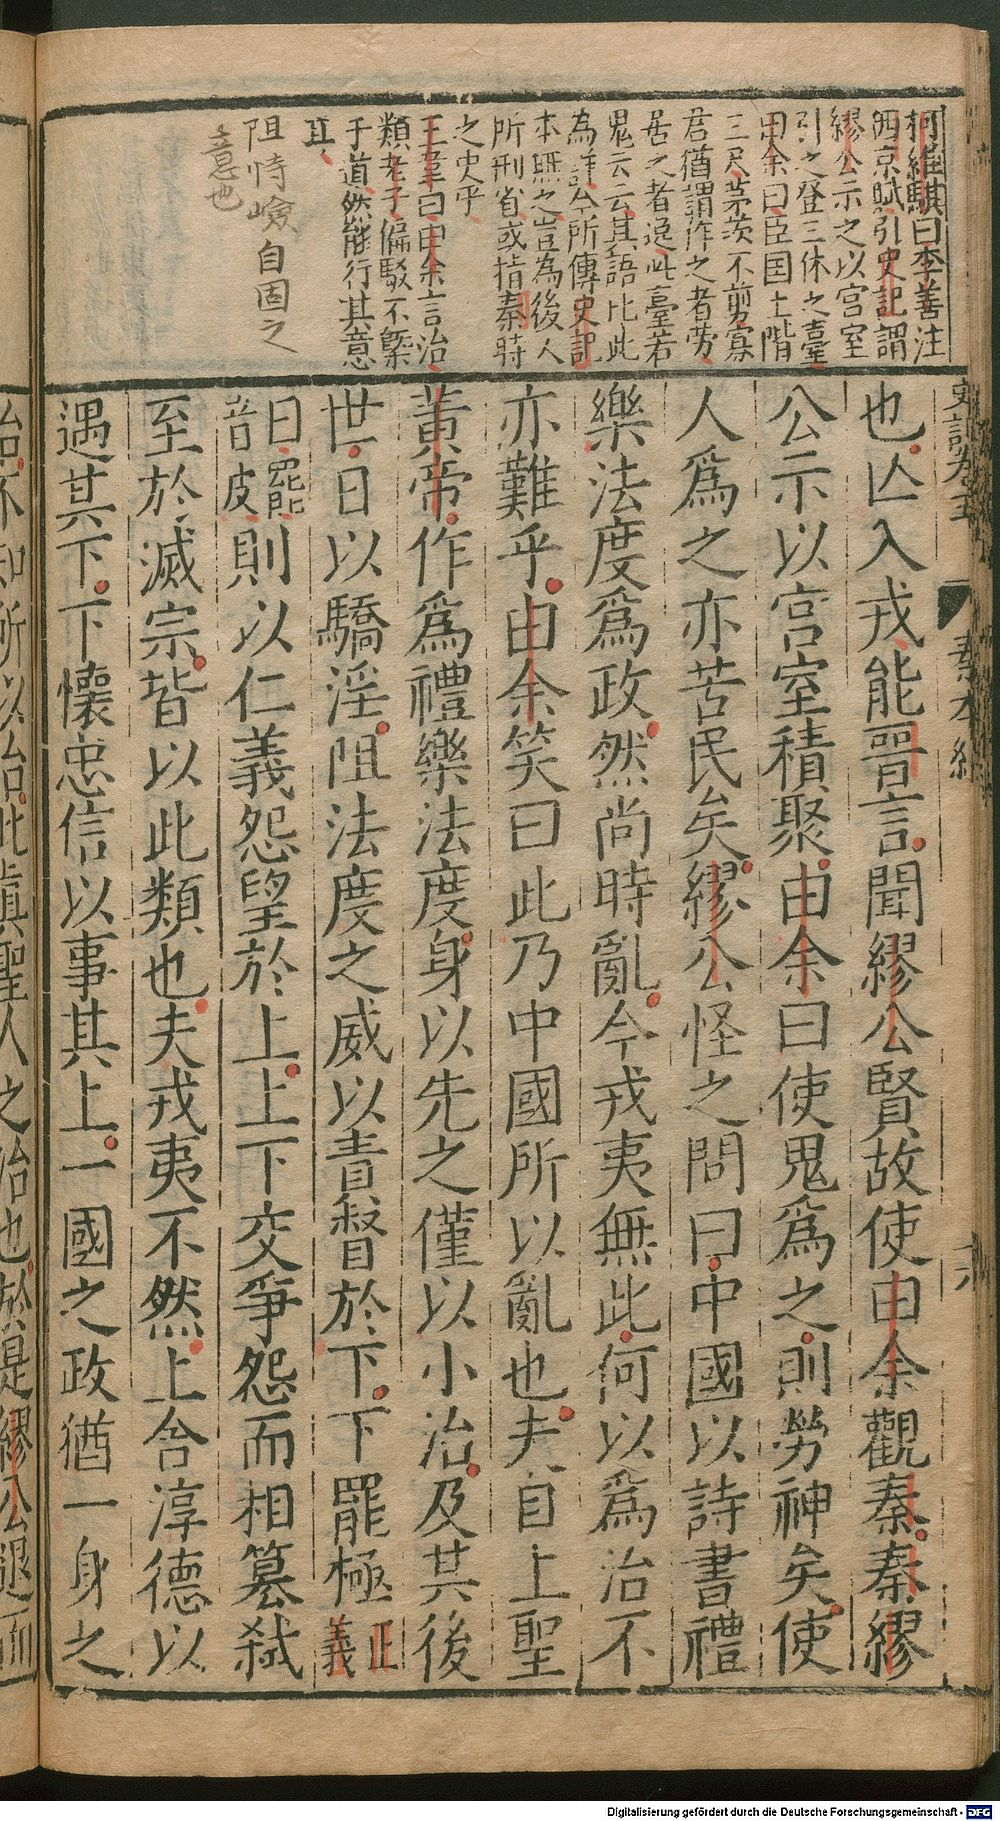 柯維騏曰李善注
西京賦引史記謂
繆公示之以宫室
引之登三休之臺
由余曰臣国土階
三尺茅茨不剪寡
君猶謂作之者勞
居之者逸此臺若
鬼云云其語比此
為詳今所傳史記
本無之豈為後人
所刑省或指秦時
之史乎
王韋曰由余言治
類老子偏駁不槩
于道然能行其意
阻恃嶮自固之
意也
史記卷五
秦本紀
六
也亾入戎能晋言聞繆公賢故使由余觀秦秦繆
公示以宫室積聚由余曰使鬼爲之則勞神矣使
人爲之亦苦民矣繆公怪之問曰中國以詩書禮
樂法度爲政然尚時亂今戎夷無此何以爲治不
亦難乎由余笑曰此乃中國所以亂也夫自上聖
黄帝作爲禮樂法度身以先之僅以小治及其後
世日以驕淫阻法度之威以責督於下下罷極正義
曰罷音皮則以仁義怨望於上上下交爭怨而相簒弑
至於滅宗皆以此類也夫戎夷不然上含淳德以
遇其下下懷忠信以事其上一國之政猶一身之
治不知所以治此真聖人之治也於是繆公退而
Digitalisierung gefördert durch die Deutsche Forschungsgemeinschaft - DFG